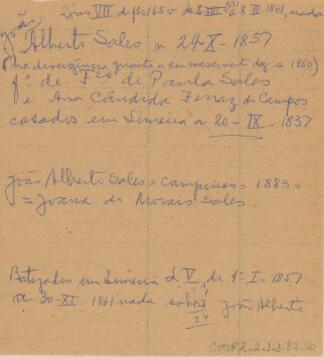 João
VII de fls 165 v de a 8 II 1861, nada
Alberto Sales n 24-X-1857
(ha divergência quanto a em nascer a 1860)
fº. de Fco de Paula Sales
e Ana Cândida Ferraz de Campos
casados em Limeira a 20-IX-1837
João Alberto Sales = Campinas = 1883 =
= Joana de Morais Sales.
Batizados em Limeira L V, de 1º-I-1857
a 30-XI-1861 nada sobre João Alberto
24